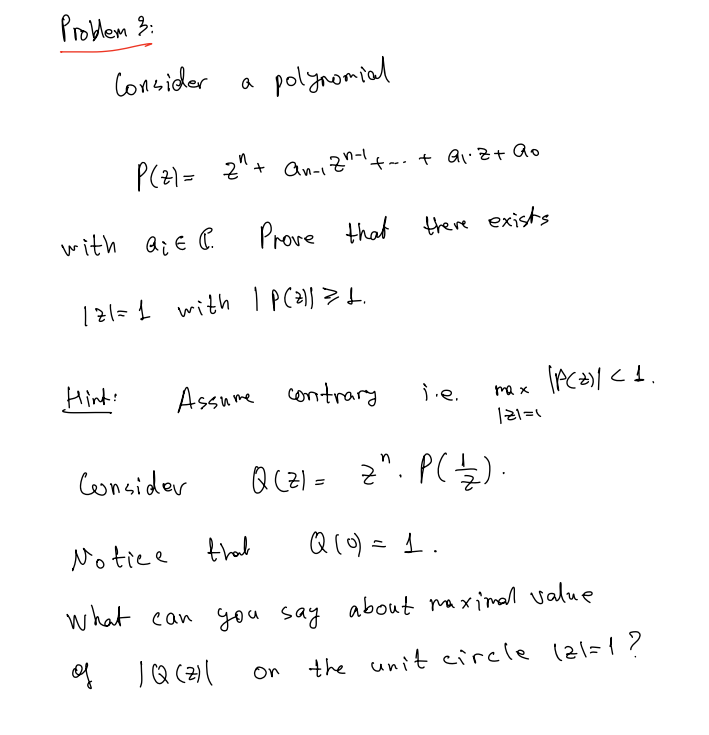 Problem 3:
Consider a polynomial
P(z) = zⁿ + aₙ₋₁ zⁿ⁻¹ + ... + a₁·z + a₀
with aᵢ ∈ ℂ. Prove that there exists
|z| = 1 with |P(z)| ≥ 1.
Hint: Assume contrary i.e. max |P(z)| < 1.
|z|=1
Consider Q(z) = zⁿ · P(1/z).
Notice that Q(0) = 1.
What can you say about maximal value
of |Q(z)| on the unit circle |z|=1 ?